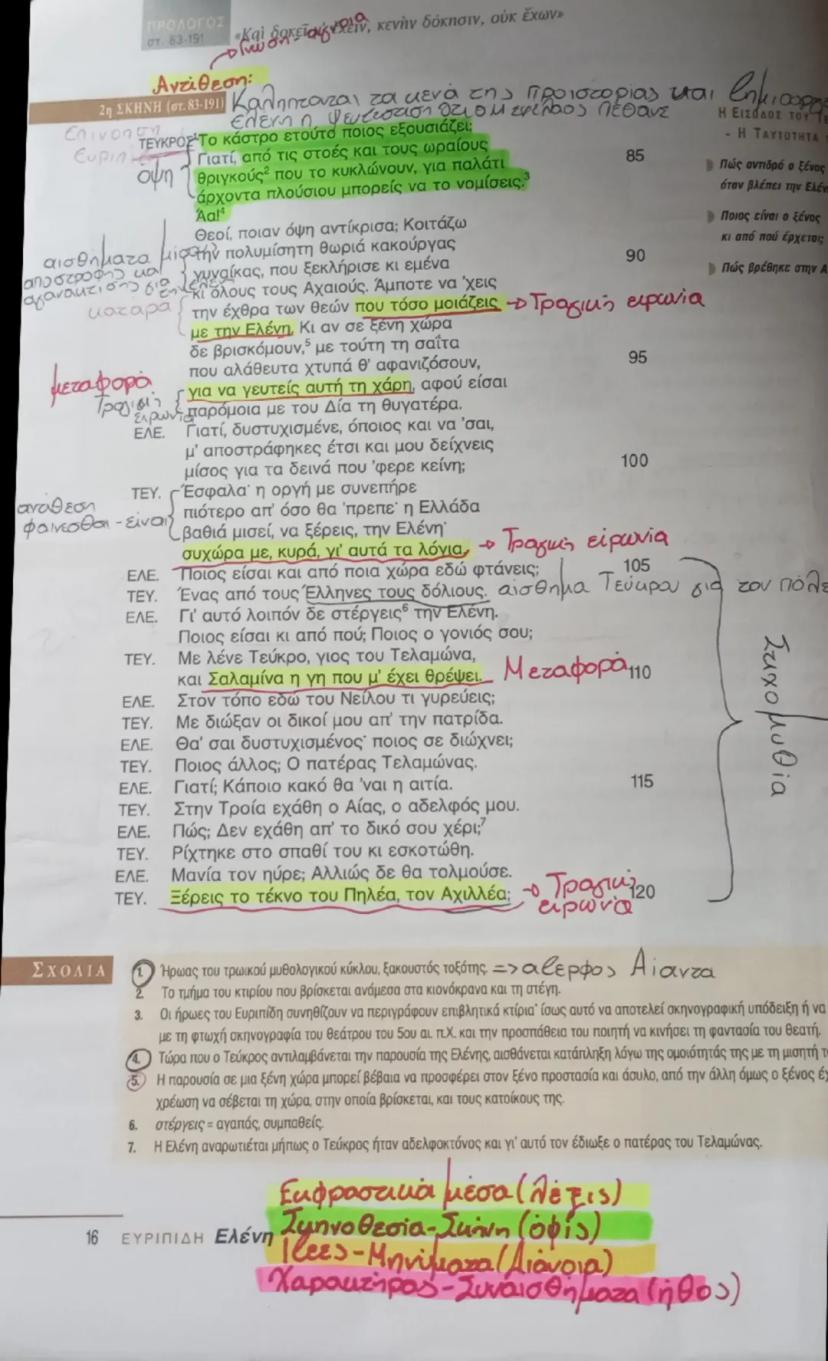 ΠΡΟΛΟΓΟΣ
στ. 83-191
«Καὶ δοκεῖ μ' ἔχειν, κενὴν δόκησιν, οὐκ ἔχων»
Γνώση - άγνοια
Αντίθεση:
2η ΣΚΗΝΗ (στ. 83-191)
Καλύπτονται τα κενά της προιστορίας και
Ελένη η ψευδαίσθηση ότι ο Μενέλαος πέθανε
Η ΕΙΣΟΔΟΣ ΤΟΥ
- Η ΤΑΥΤΟΤΗΤΑ
Επινόηση
όψη
ΤΕΥΚΡΟΣ¹ Το κάστρο ετούτο ποιος εξουσιάζει;
Γιατί, από τις στοές και τους ωραίους 85
θριγκούς² που το κυκλώνουν, για παλάτι
άρχοντα πλούσιου μπορείς να το νομίσεις.³
Άα!⁴
Πώς αντιδρά ο ξένος
όταν βλέπει την Ελέν
Ποιος είναι ο ξένος
κι από πού έρχεται
Πώς βρέθηκε στην Α
Θεοί, ποιαν όψη αντίκρισα; Κοιτάζω
την πολυμίσητη θωριά κακούργας 90
γυναίκας, που ξεκλήρισε κι εμένα
κι όλους τους Αχαιούς. Άμποτε να 'χεις
την έχθρα των θεών που τόσο μοιάζεις → Τραγική ειρωνία
με την Ελένη. Κι αν σε ξένη χώρα
δε βρισκόμουν,⁵ με τούτη τη σαΐτα 95
που αλάθευτα χτυπά θ' αφανιζόσουν,
για να γευτείς αυτή τη χάρη, αφού είσαι
παρόμοια με του Δία τη θυγατέρα.
αισθήματα μίσους
αποστροφής και
αγανάκτησης για
κατάρα
μεταφορά
Τραγική
ειρωνία
ΕΛΕ. Γιατί, δυστυχισμένε, όποιος και να 'σαι,
μ' αποστράφηκες έτσι και μου δείχνεις
μίσος για τα δεινά που 'φερε κείνη; 100
ΤΕΥ. Έσφαλα· η οργή με συνεπήρε
πιότερο απ' όσο θα 'πρεπε· η Ελλάδα
βαθιά μισεί, να ξέρεις, την Ελένη·
συχώρα με, κυρά, γι' αυτά τα λόγια. → Τραγική ειρωνία
αντίθεση
φαίνεσθαι - είναι
ΕΛΕ. Ποιος είσαι και από ποια χώρα εδώ φτάνεις; 105
ΤΕΥ. Ένας από τους Έλληνες τους δόλιους. αίσθημα Τεύκρου για τον πόλε
ΕΛΕ. Γι' αυτό λοιπόν δε στέργεις⁶ την Ελένη.
Ποιος είσαι κι από πού; Ποιος ο γονιός σου;
ΤΕΥ. Με λένε Τεύκρο, γιος του Τελαμώνα,
και Σαλαμίνα η γη που μ' έχει θρέψει. Μεταφορά 110
ΕΛΕ. Στον τόπο εδώ του Νείλου τι γυρεύεις;
ΤΕΥ. Με διώξαν οι δικοί μου απ' την πατρίδα.
ΕΛΕ. Θα' σαι δυστυχισμένος· ποιος σε διώχνει;
ΤΕΥ. Ποιος άλλος; Ο πατέρας Τελαμώνας.
ΕΛΕ. Γιατί; Κάποιο κακό θα 'ναι η αιτία. 115
ΤΕΥ. Στην Τροία εχάθη ο Αίας, ο αδελφός μου.
ΕΛΕ. Πώς; Δεν εχάθη απ' το δικό σου χέρι;⁷
ΤΕΥ. Ρίχτηκε στο σπαθί του κι εσκοτώθη.
ΕΛΕ. Μανία τον ηύρε; Αλλιώς δε θα τολμούσε.
ΤΕΥ. Ξέρεις το τέκνο του Πηλέα, τον Αχιλλέα; → Τραγική 120
ειρωνία
Στιχομυθία
ΣΧΟΛΙΑ
1. Ήρωας του τρωικού μυθολογικού κύκλου, ξακουστός τοξότης. => αδερφος Αίαντα
2. Το τμήμα του κτιρίου που βρίσκεται ανάμεσα στα κιονόκρανα και τη στέγη.
3. Οι ήρωες του Ευριπίδη συνηθίζουν να περιγράφουν επιβλητικά κτίρια· ίσως αυτό να αποτελεί σκηνογραφική υπόδειξη ή να
με τη φτωχή σκηνογραφία του θεάτρου του 5ου αι. π.Χ. και την προσπάθεια του ποιητή να κινήσει τη φαντασία του θεατή.
4. Τώρα που ο Τεύκρος αντιλαμβάνεται την παρουσία της Ελένης, αισθάνεται κατάπληξη λόγω της ομοιότητάς της με τη μισητή τ
5. Η παρουσία σε μια ξένη χώρα μπορεί βέβαια να προσφέρει στον ξένο προστασία και άσυλο, από την άλλη όμως ο ξένος έχ
χρέωση να σέβεται τη χώρα, στην οποία βρίσκεται, και τους κατοίκους της.
6. στέργεις = αγαπάς, συμπαθείς.
7. Η Ελένη αναρωτιέται μήπως ο Τεύκρος ήταν αδελφοκτόνος και γι' αυτό τον έδιωξε ο πατέρας του Τελαμώνας.
Εκφραστικά μέσα (λέξις)
16 ΕΥΡΙΠΙΔΗ Ελένη Σκηνοθεσία-Σκήνη (όψις)
Ιδεες - Μηνύματα (Διάνοια)
Χαρακτήρας - Συναισθήματα (ήθος)